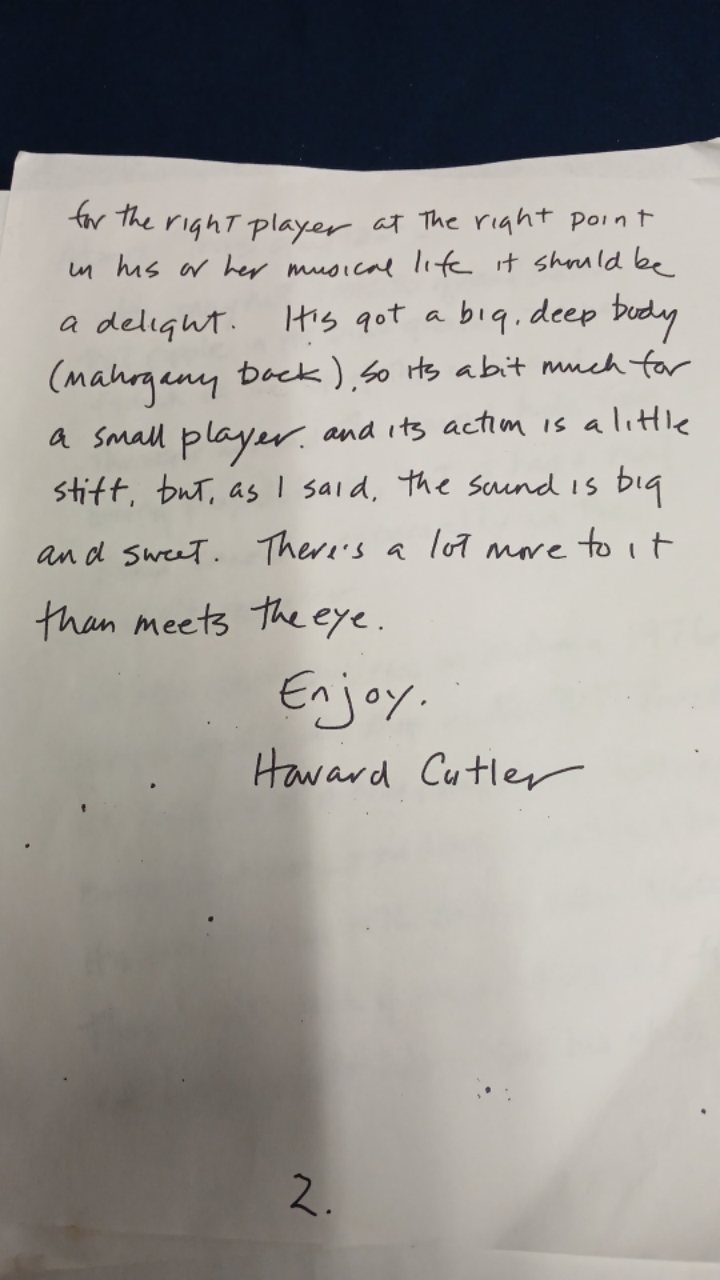 for the right player at the right point
in his or her musical life it should be
a delight. It's got a big, deep body
(mahogany back), so its a bit much for
a small player, and its action is a little
stiff, but, as I said, the sound is big
and sweet. There's a lot more to it
than meets the eye.
Enjoy.
Howard Cutler
2.